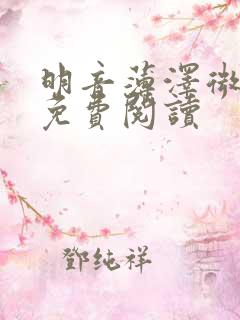 明音薄澤微
免費閱讀
鄧純祥